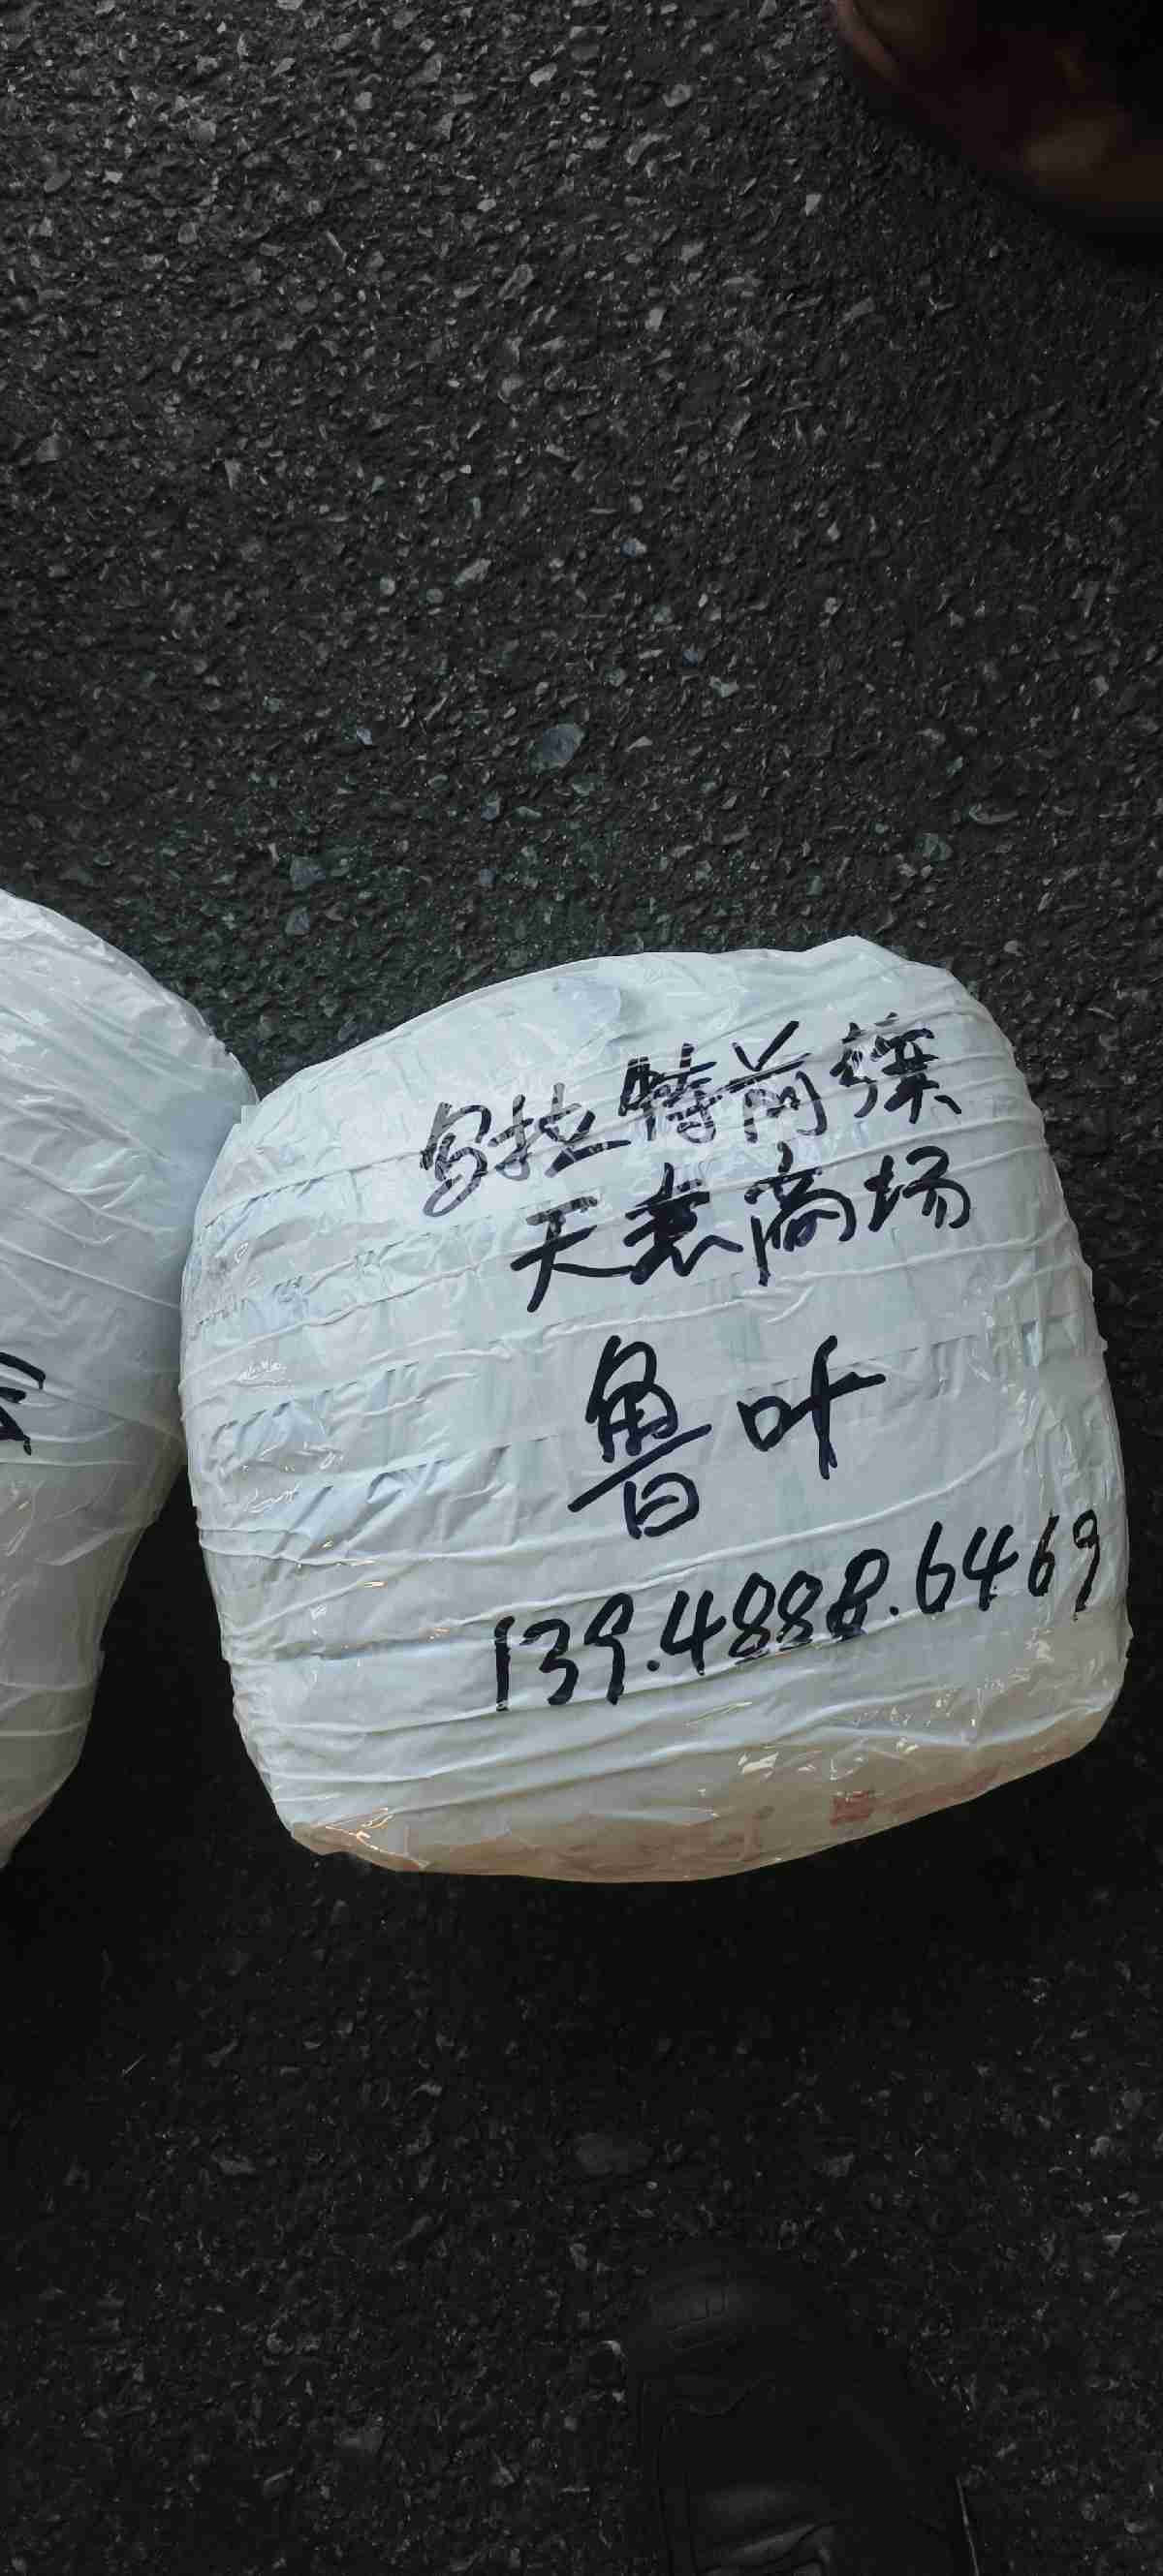 乌拉特前旗
天意商场
鲁叶
139.4888.6469